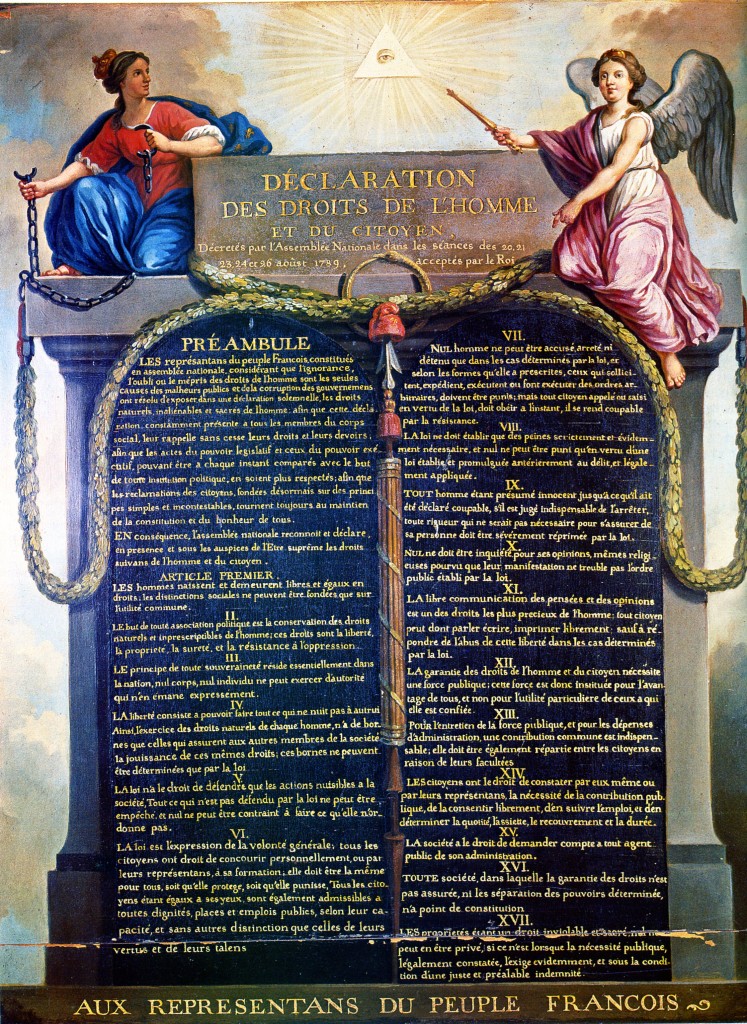 DÉCLARATION
DES DROITS DE L'HOMME
ET DU CITOYEN,
Décretés par l'Assemblée Nationale dans les séances des 20, 21
23, 24 et 26 aoûst 1789, acceptés par le Roi
PRÉAMBULE
LES représantans du peuple Francois, constitués
en assemblée nationale, considérant que l'ignorance,
l'oubli ou le mépris des droits de l'homme sont les seules
causes des malheurs publics et de la corruption des gouvernemens
ont résolu d'exposer dans une déclaration solemnelle, les droits
naturels, inaliénables et sacrés de l'homme: afin que cette décla-
ration, constamment présente a tous les membres du corps
social, leur rappelle sans cesse leurs droits et leurs devoirs,
afin que les actes du pouvoir législatif et ceux du pouvoir exé-
cutif, pouvant être a chaque instant comparés avec le but
de toute institution politique, en soient plus respectés; afin que
les réclamations des citoyens, fondées désormais sur des princi-
pes simples et incontestables, tournent toujours au maintien
de la constitution et du bonheur de tous.
EN conséquence, l'assemblée nationale reconnoit et déclare,
en presence et sous les auspices de l'Etre suprême les droits
suivans de l'homme et du citoyen.
ARTICLE PREMIER.
LES hommes naissent et demeurent libres et égaux en
droits; les distinctions sociales ne peuvent être fondées que sur
l'utilité commune.
II.
LE but de toute association politique est la conservation des droits
naturels et inprescriptibles de l'homme; ces droits sont la liberté,
la propriété, la sureté, et la résistance à l'oppression.
III.
LE principe de toute souveraineté réside essentiellement dans
la nation, nul corps, nul individu ne peut exercer d'autorité
qui n'en émane expressément.
IV.
LA liberté consiste a pouvoir faire tout ce qui ne nuit pas à autrui
Ainsi, l'exercice des droits naturels de chaque homme, n'a de bor-
nes que celles qui assurent aux autres membres de la société
la jouissance de ces mêmes droits; ces bornes ne peuvent
être déterminées que par la loi.
V.
LA loi n'a le droit de défendre que les actions nuisibles a la
société, Tout ce qui n'est pas défendu par la loi ne peut être
empêché, et nul ne peut être contraint à faire ce qu'elle n'or-
donne pas.
VI.
LA loi est l'expression de la volonté générale; tous les
citoyens ont droit de concourir personnellement, ou par
leurs représentans, à sa formation; elle doit être la même
pour tous, soit qu'elle protege, soit qu'elle punisse, Tous les cito-
yens étant égaux à ses yeux, sont également admissibles a
toutes dignités, places et emplois publics, selon leur ca-
pacité, et sans autres distinction que celles de leurs
vertus et de leurs talens
VII.
NUL homme ne peut être accusé, arreté, ni
détenu que dans les cas déterminés par la loi, et
selon les formes qu'elle a prescrites, ceux qui sollici-
tent, expédient, exécutent ou font exécuter des ordres ar-
bitraires, doivent être punis; mais tout citoyen appelé ou saisi
en vertu de la loi, doit obéir a l'instant, il se rend coupable
par la résistance.
VIII.
LA loi ne doit établir que des peines strictement et évidem-
ment nécessaire, et nul ne peut être puni qu'en vertu d'une
loi établie et promulguée antérierement au délit, et légale-
ment appliquée.
IX.
TOUT homme étant présumé innocent jusqu'à ce qu'il ait
été déclaré coupable, s'il est jugé indispensable de l'arrêter,
toute rigueur qui ne serait pas nécessaire pour s'assurer de
sa personne doit être sévérement réprimée par la loi.
X.
NUL ne doit être inquiété pour ses opinions, mêmes religi-
euses pourvu que leur manifestation ne trouble pas l'ordre
public établi par la loi.
XI.
LA libre communication des pensées et des opinions
est un des droits les plus precieux de l'homme; tout citoyen
peut dont parler écrire, imprimer librement; sauf à ré-
pondre de l'abus de cette liberté dans les cas déterminés
par la loi.
XII.
LA garantie des droits de l'homme et du citoyen nécessite
une force publique; cette force est donc instituée pour l'avan-
tage de tous, et non pour l'utilité particuliere de ceux a qui
elle est confiée.
XIII.
POUR l'entretien de la force publique, et pour les dépenses
d'administration, une contribution commune est indispen-
sable; elle doit être également répartie entre les citoyens en
raison de leurs facultées
XIV.
LES citoyens ont le droit de constater par eux même ou
par leurs représentans, la nécessité de la contribution pub-
lique, de la consentir librement, d'en suivre l'emploi, et d'en
déterminer la quotité, l'assiette, le recouvrement et la durée.
XV.
LA société a le droit de demander compte a tout agent
public de son administration.
XVI.
TOUTE société, dans laquelle la garantie des droits n'est
pas assurée, ni les séparation des pouvoirs déterminée,
n'a point de constitution
XVII.
LES proprietés étant un droit inviolable et sacré, nul ne
peut en être privé, si ce n'est lorsque la nécessité publique,
légalement constatée, l'exige evidemment, et sous la condi-
tion d'une juste et préalable indemnité.
AUX REPRESENTANS DU PEUPLE FRANCOIS